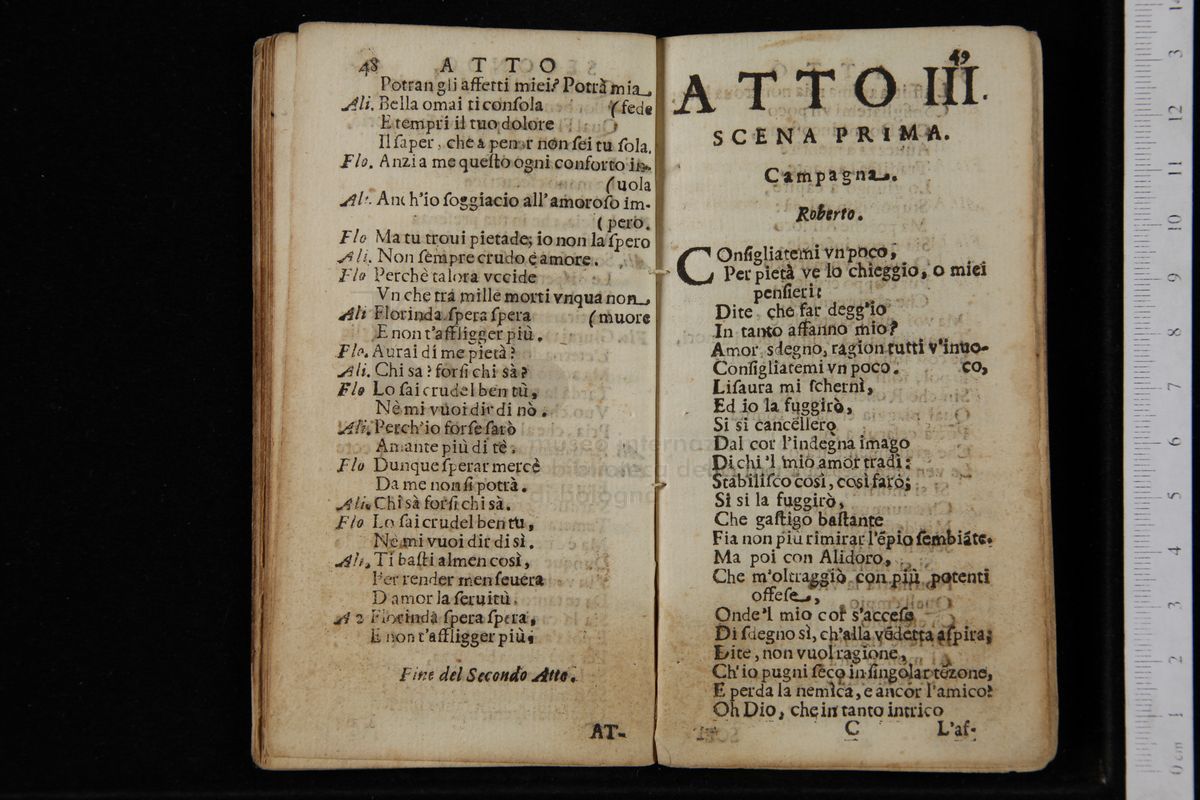 48 ATTO
Potran gli affetti miei? Potrà mia
Ali. Bella omai ti consola (fede
E tempri il tuo dolore
Il saper, che a penar non sei tu sola.
Flo. Anzi a me questo ogni conforto in-
(uola
Ali. Anch'io soggiacio all'amoroso im-
(pero.
Flo Ma tu troui pietade; io non la spero
Ali. Non sempre crudo è amore.
Flo Perchè talora vccide
Vn che trà mille morti vnqua non
Ali Florinda spera spera (muore
E non t'affligger più.
Flo. Aurai di me pietà?
Ali. Chi sa? forsi chi sà?
Flo Lo sai crudel ben tù,
Nè mi vuoi dir di nò.
Ali. Perch'io forse sarò
Amante più di tè.
Flo Dunque sperar mercè
Da me non si potrà.
Ali. Chi sà forsi chi sà.
Flo Lo sai crudel ben tu,
Ne mi vuoi dir di sì.
Ali. Ti basti almen così,
Per render men seuera
D amor la seruitù.
A 2 Florinda spera spera,
E non t'affligger più.
Fine del Secondo Atto.
AT-
49
ATTO III.
SCENA PRIMA.
Campagna.
Roberto.
COnsigliatemi vn poco,
Per pietà ve lo chieggio, o miei
pensieri:
Dite, che far degg'io
In tanto affanno mio?
Amor, sdegno, ragion tutti v'inuo-
Consigliatemi vn poco. co,
Lisaura mi schernì,
Ed io la fuggirò,
Si si cancellerò
Dal cor l'indegna imago
Di chi 'l mio amor tradì:
Stabilisco così, così farò;
Si si la fuggirò,
Che gastigo bastante
Fia non più rimirar l'épio sembiáte.
Ma poi con Alidoro,
Che m'oltraggiò con più potenti
offese,
Onde'l mio cor s'accese
Di sdegno sì, ch'alla védetta aspira;
Dite, non vuol ragione,
Ch'io pugni seco in singolar tézone,
E perda la nemica, e ancor l'amico?
Oh Dio, che in tanto intrico
C L'af-